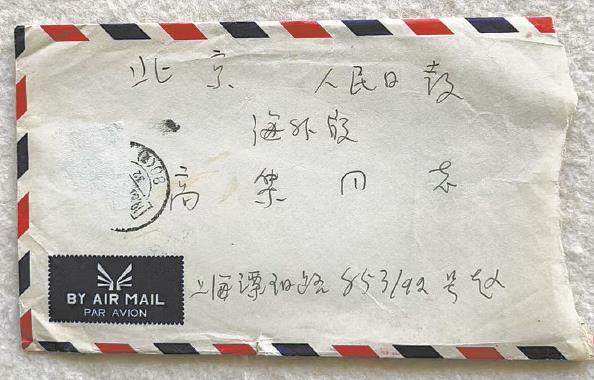 北京 人民日报
海外版
高集同志
上海溧阳路 853/92号赵
BY AIR MAIL
PAR AVION